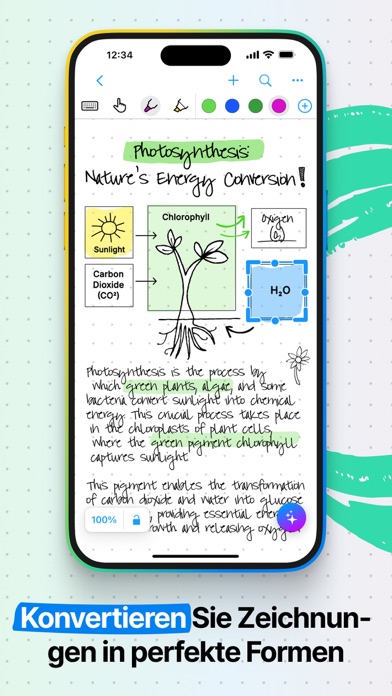 12:34
100%
Photosynthesis:
Nature's Energy Conversion!
Sunlight
Chlorophyll
Oxigen
(O₂)
Carbon
Dioxide
(CO²)
H₂O
Photosynthesis is the process by
which green plants, algae, and some
bacteria convert sunlight into chemical
energy. This crucial process takes place
in the chloroplasts of plant cells,
where the green pigment chlorophyll
captures sunlight.
This pigment enables the transformation
of carbon dioxide and water into glucose
providing essential energy
growth and releasing oxygen
Konvertieren Sie Zeichnun-
gen in perfekte Formen